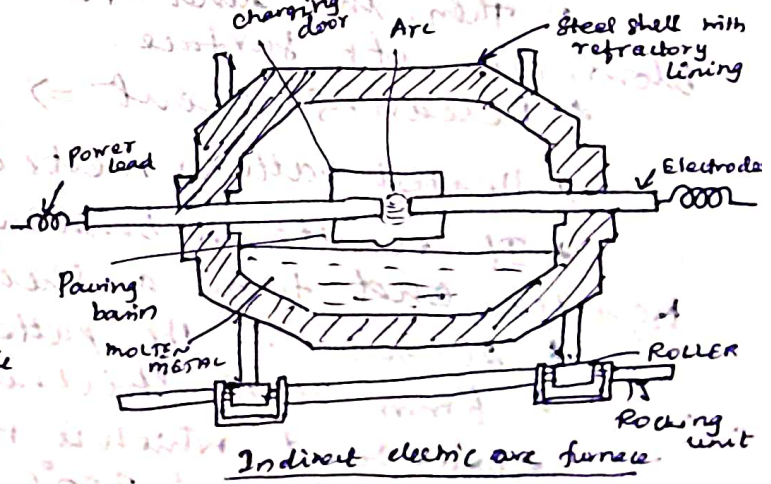 Charging
door
Arc
Steel shell with
refractory
lining
Power
lead
Electrode
Pouring
basin
MOLTEN
METAL
ROLLER
Rocking
unit
Indirect electric arc furnace.